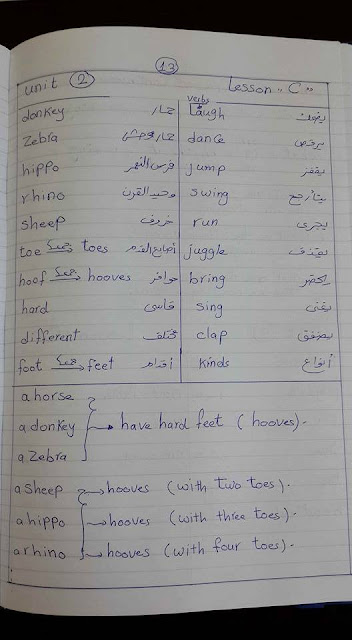 13
Unit 2 Lesson "C"
verbs
donkey حمار Laugh يضحك
Zebra حمار وحشى dance يرقص
hippo فرس النهر jump يقفز
rhino وحيد القرن swing يتأرجح
sheep خروف run يجرى
toe جمعها toes أصابع القدم juggle يقذف
hoof جمعها hooves حوافر bring يحضر
hard قاسى sing يغنى
different مختلف clap يصفق
foot جمعها feet أقدام kinds أنواع
a horse
a donkey have hard feet (hooves).
a Zebra
a Sheep hooves (with two toes).
a hippo hooves (with three toes).
a rhino hooves (with four toes).